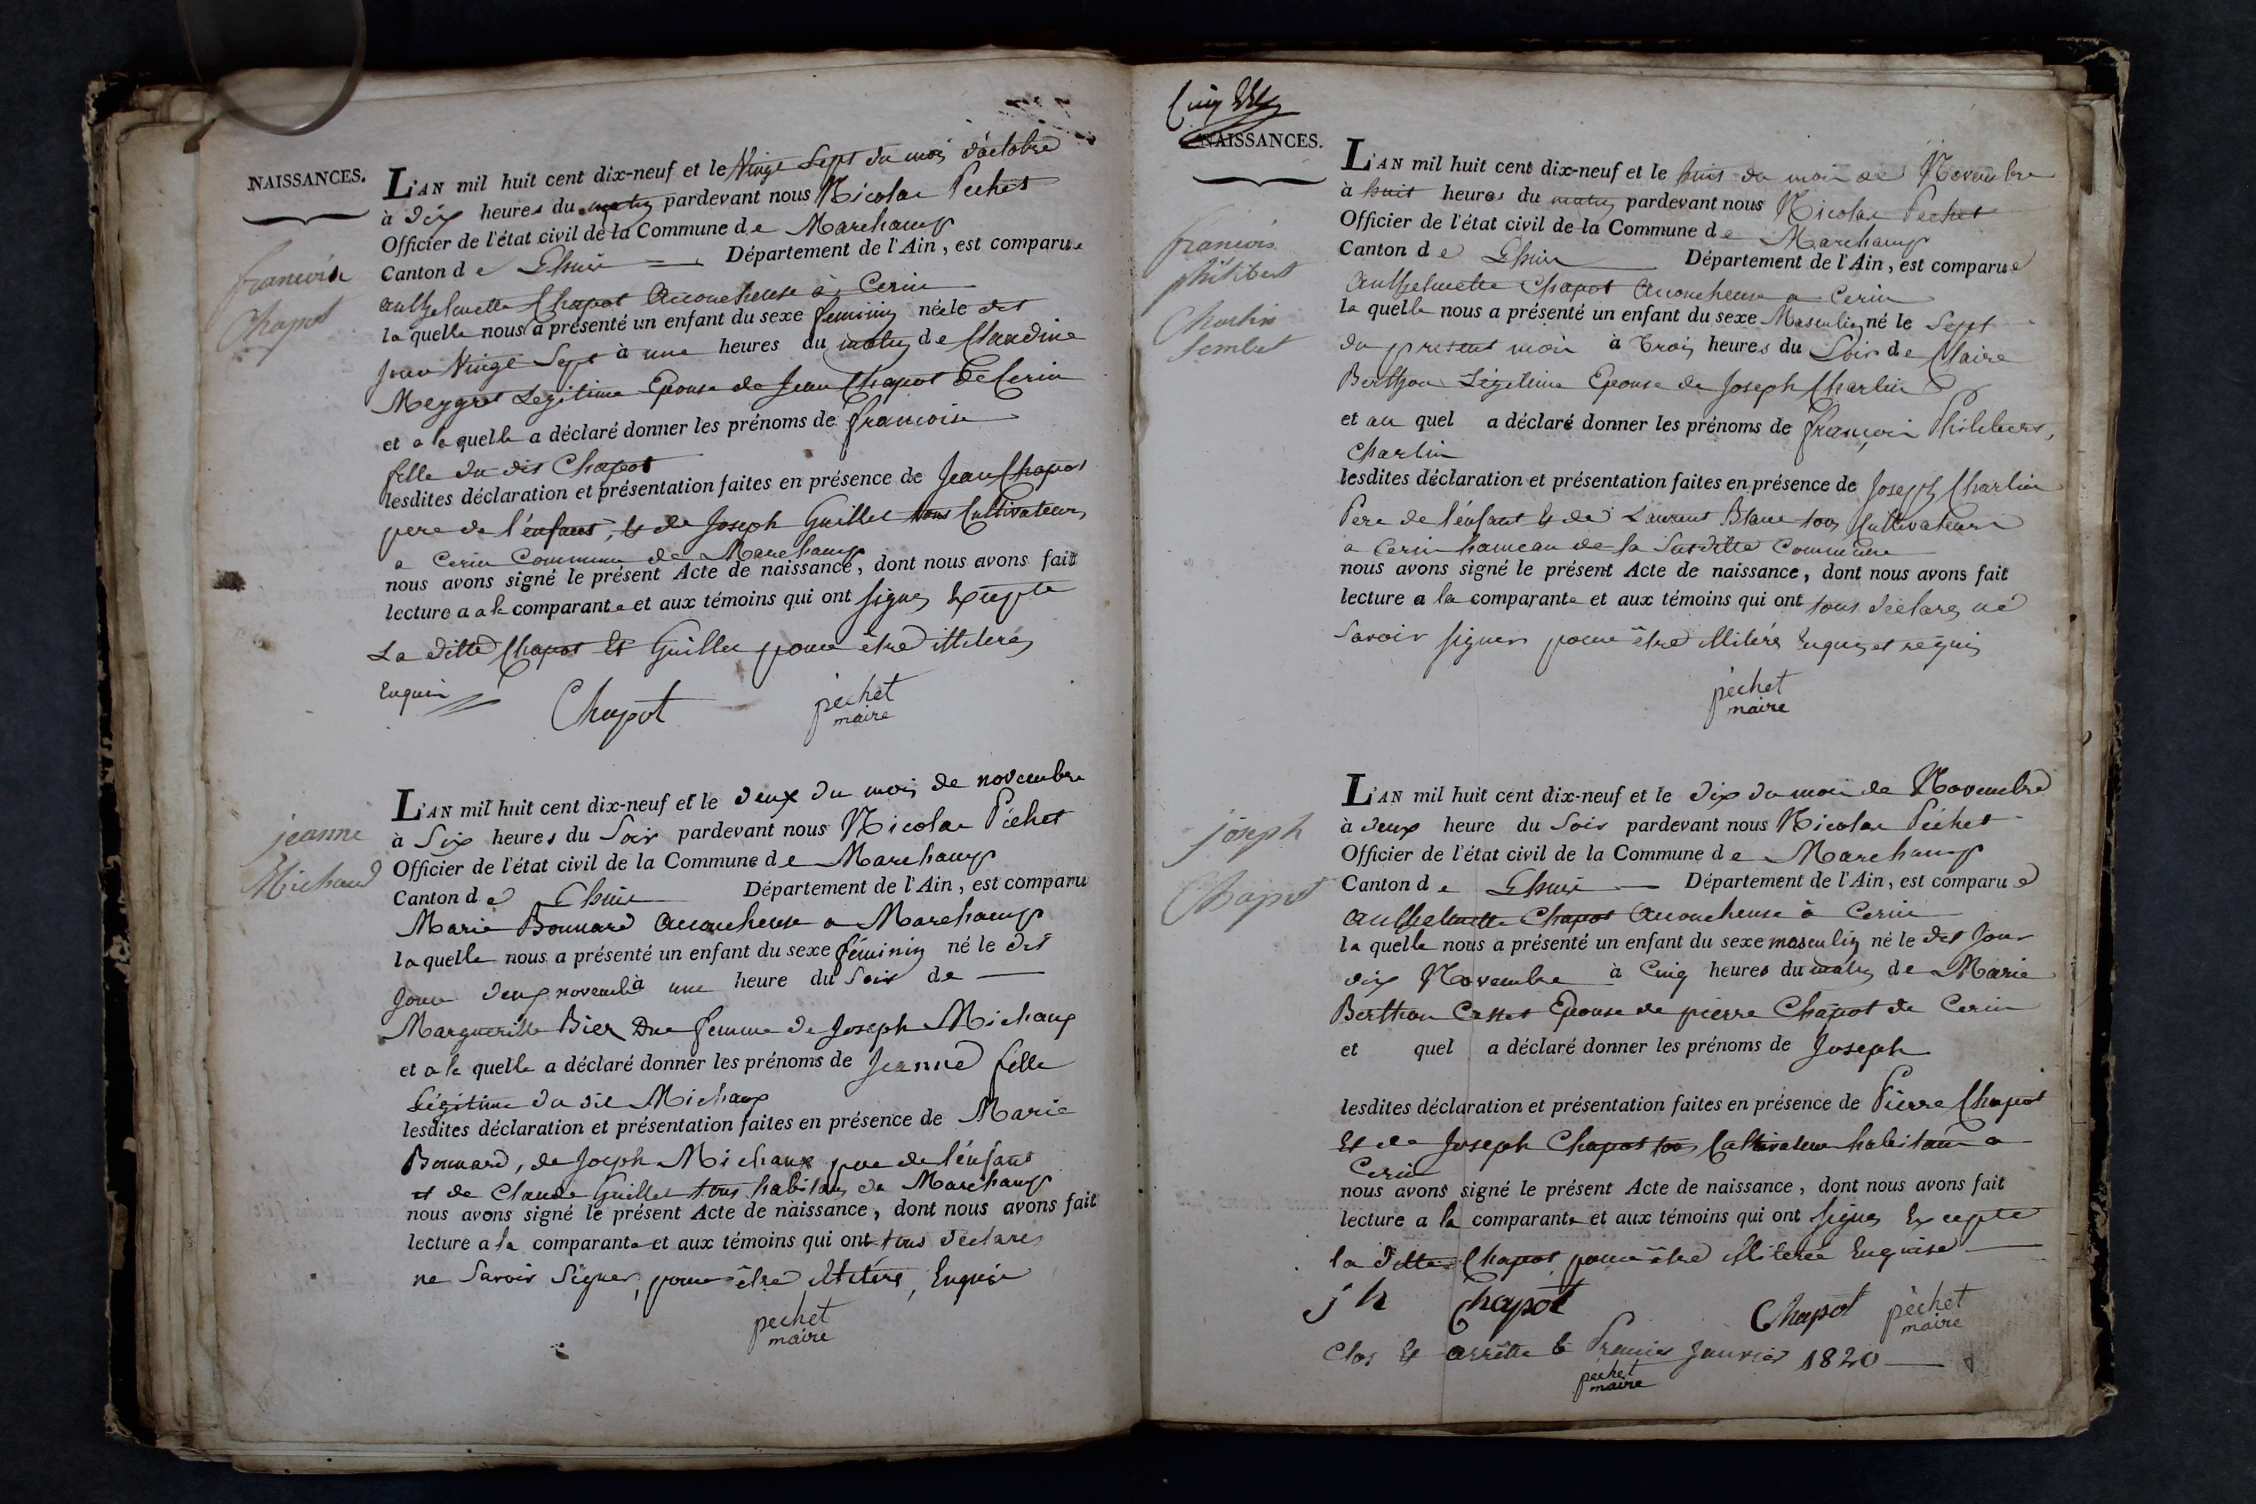 NAISSANCES.
françoise
Chapot
L'AN mil huit cent dix-neuf et le Vingt Sept du mois d'octobre
à Dix heures du matin pardevant nous Nicolas Pechet
Officier de l'état civil de la Commune de Marchamp
Canton de Lhuis Département de l'Ain, est comparue
anthelmette Chapot accoucheuse à Cerin
laquelle nous a présenté un enfant du sexe feminin née le dit
Jour Vingt Sept à une heures du matin de Claudine
Meygret Legitime Epouse de Jean Chapot de Cerin
et a laquelle a déclaré donner les prénoms de françoise
fille du dit Chapot
lesdites déclaration et présentation faites en présence de Jean Chapot
pere de l'enfant, & de Joseph Guillet tous Cultivateurs
a Cerin Commune de Marchamp
nous avons signé le présent Acte de naissance, dont nous avons fait
lecture a a la comparante et aux témoins qui ont signés Excepte
La ditte Chapot & Guillet pour être illiteres
Enquis
Chapot
pechet
maire
jeanne
Michaud
L'AN mil huit cent dix-neuf et le deux du mois de novembre
à Six heures du Soir pardevant nous Nicolas Péchet
Officier de l'état civil de la Commune de Marchamp
Canton de Lhuis Département de l'Ain, est comparu
Marie Bonnard accoucheuse a Marchamp
laquelle nous a présenté un enfant du sexe féminin né le dit
Jour deux novembre à une heure du Soir de
Margueritte Bier femme de Joseph Michaux
et a la quelle a déclaré donner les prénoms de Jeanne fille
Légitime du dit Michaux
lesdites déclaration et présentation faites en présence de Marie
Bonnard, de Joseph Michaux pere de l'énfant
et de Claude Guillet tous habitans de Marchamp
nous avons signé le présent Acte de naissance, dont nous avons fait
lecture a la comparante et aux témoins qui ont tous déclarés
ne Savoir Signer, pour être illitérés, Enquis
pechet
maire
Cinq
NAISSANCES.
françois
philibert
Charlin
L'AN mil huit cent dix-neuf et le huit du mois de Novembre
à huit heures du matin pardevant nous Nicolas Pechet
Officier de l'état civil de la Commune de Marchamp
Canton de Lhuis Département de l'Ain, est comparue
anthelmette Chapot accoucheuse a Cerin
la quelle nous a présenté un enfant du sexe Masculin né le Sept
du present mois à trois heures du Soir de Claire
Berthon Légitime Epouse de Joseph Charlin
et au quel a déclaré donner les prénoms de françois Philibert,
Charlin
lesdites déclaration et présentation faites en présence de Joseph Charlin
Pere de l'énfant & de Laurent Blanc tous Cultivateurs
a Cerin hameau de la Susditte Commune
nous avons signé le présent Acte de naissance, dont nous avons fait
lecture a la comparante et aux témoins qui ont tous déclarés né
Savoir signer pour être illitérés Enquis et requis
péchet
maire
joseph
Chapot
L'AN mil huit cent dix-neuf et le dix du mois de Novembre
à deux heure du Soir pardevant nous Nicolas Péchet
Officier de l'état civil de la Commune de Marchamp
Canton de Lhuis Département de l'Ain, est comparue
anthelmette Chapot accoucheuse à Cerin
la quelle nous a présenté un enfant du sexe masculin né le dit Jour
dix Novembre à Cinq heures du matin de Marie
Berthon Epouse de pierre Chapot de Cerin
et quel a déclaré donner les prénoms de Joseph
lesdites déclaration et présentation faites en présence de Pierre Chapot
& de Joseph Chapot tous Cultivateurs habitans a
Cerin
nous avons signé le présent Acte de naissance, dont nous avons fait
lecture a la comparante et aux témoins qui ont signés Excepte
la ditte Chapot pour être illiterée Enquise
jh Chapot
Chapot
péchet
maire
Clos & arrêtté le Premier Janvier 1820
péchet
maire